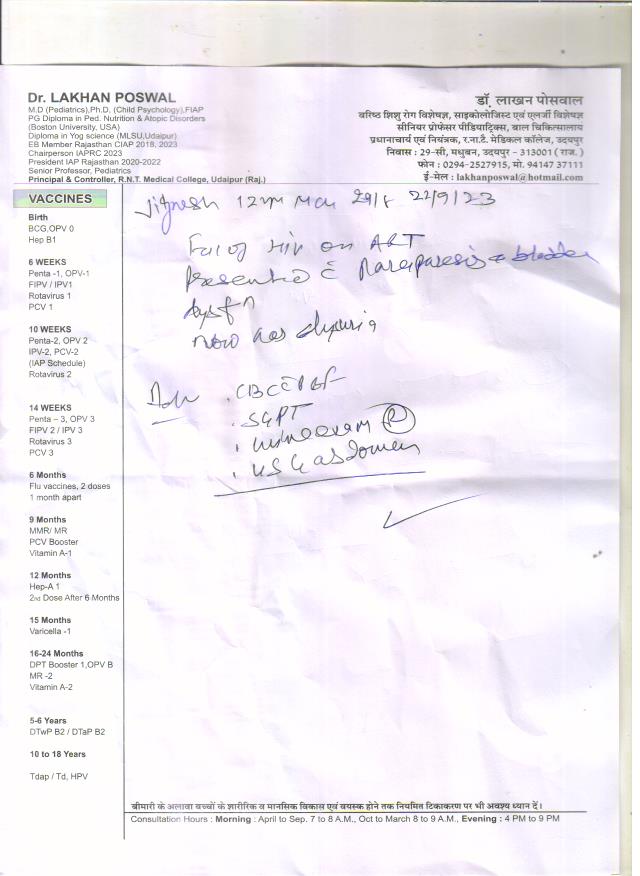 Dr. LAKHAN POSWAL
M.D (Pediatrics),Ph.D. (Child Psychology),FIAP
PG Diploma in Ped. Nutrition & Atopic Disorders
(Boston University, USA)
Diploma in Yog science (MLSU,Udaipur)
EB Member Rajasthan CIAP 2018, 2023
Chairperson IAPRC 2023
President IAP Rajasthan 2020-2022
Senior Professor, Pediatrics
Principal & Controller, R.N.T. Medical College, Udaipur (Raj.)
डॉ. लाखन पोसवाल
वरिष्ठ शिशु रोग विशेषज्ञ, साइकोलोजिस्ट एवं एलर्जी विशेषज्ञ
सीनियर प्रोफेसर पीडियाट्रिक्स, बाल चिकित्सालय
प्रधानाचार्य एवं नियंत्रक, र.ना.टै. मेडिकल कॉलेज, उदयपुर
निवास : 29-सी, मधुबन, उदयपुर - 313001 ( राज. )
फोन : 0294-2527915, मो. 94147 37111
ई-मेल : lakhanposwal@hotmail.com
VACCINES
Birth
BCG,OPV 0
Hep B1
6 WEEKS
Penta -1, OPV-1
FIPV / IPV1
Rotavirus 1
PCV 1
10 WEEKS
Penta-2, OPV 2
IPV-2, PCV-2
(IAP Schedule)
Rotavirus 2
14 WEEKS
Penta – 3, OPV 3
FIPV 2 / IPV 3
Rotavirus 3
PCV 3
6 Months
Flu vaccines, 2 doses
1 month apart
9 Months
MMR/ MR
PCV Booster
Vitamin A-1
12 Months
Hep-A 1
2nd Dose After 6 Months
15 Months
Varicella -1
16-24 Months
DPT Booster 1,OPV B
MR -2
Vitamin A-2
5-6 Years
DTwP B2 / DTaP B2
10 to 18 Years
Tdap / Td, HPV
Jignesh 12yr 22/9/23
of HIV on ART
Presented c̄ Paraparesis & bladder
dysfn
Now has dysuria
Adv . CBC c̄ PBF
. SGPT
. Urine exam (R)
. USG abdomen
बीमारी के अलावा बच्चों के शारीरिक व मानसिक विकास एवं वयस्क होने तक नियमित टिकाकरण पर भी अवश्य ध्यान दें।
Consultation Hours : Morning : April to Sep. 7 to 8 A.M., Oct to March 8 to 9 A.M., Evening : 4 PM to 9 PM